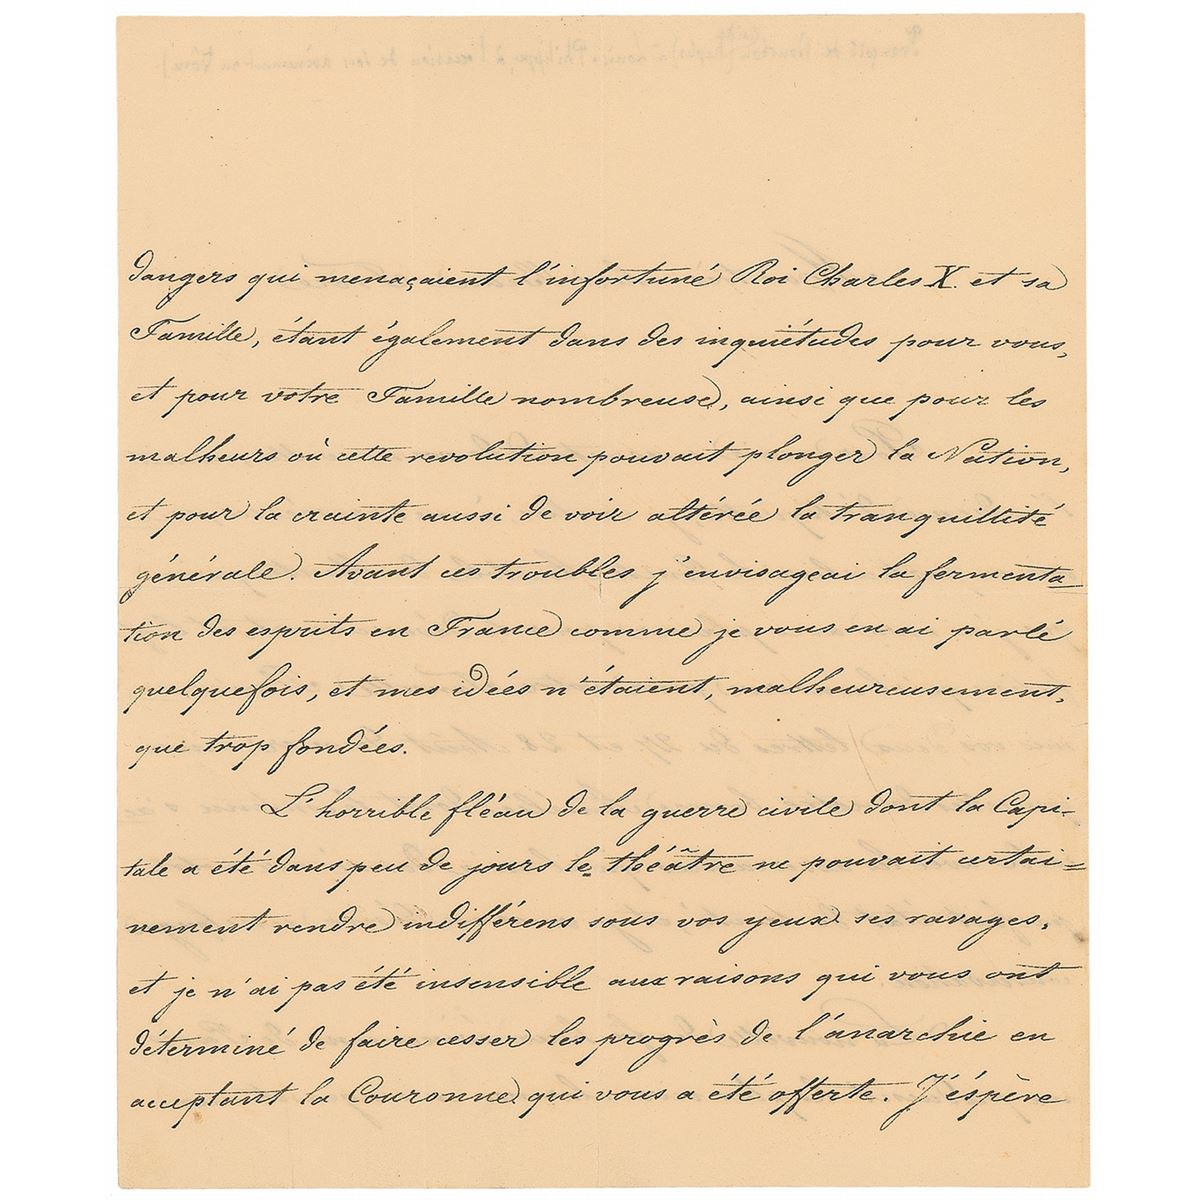 dangers qui menaçaient l'infortuné Roi Charles X. et sa
Famille, étant également dans des inquiétudes pour vous,
et pour votre Famille nombreuse, ainsi que pour les
malheurs où cette revolution pouvait plonger la Nation,
et pour la crainte aussi de voir altérée la tranquillité
générale. Avant ces troubles j'envisageai la fermenta=
tion des esprits en France comme je vous en ai parlé
quelquefois, et mes idées n'étaient, malheureusement,
que trop fondées.
L'horrible fléau de la guerre civile dont la Capi-
tale a été dans peu de jours le théâtre ne pouvait certai=
nement rendre indifférens sous vos yeux ses ravages,
et je n'ai pas été insensible aux raisons qui vous ont
déterminé de faire cesser les progrès de l'anarchie en
acceptant la Couronne qui vous a été offerte. J'éspère